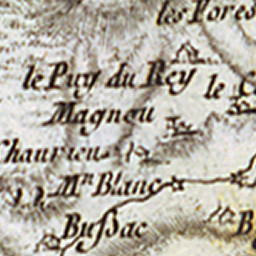 les Pores
le Puy du Rey
le
Magnou
Chaurieu
Mn Blanc
Bußac
B